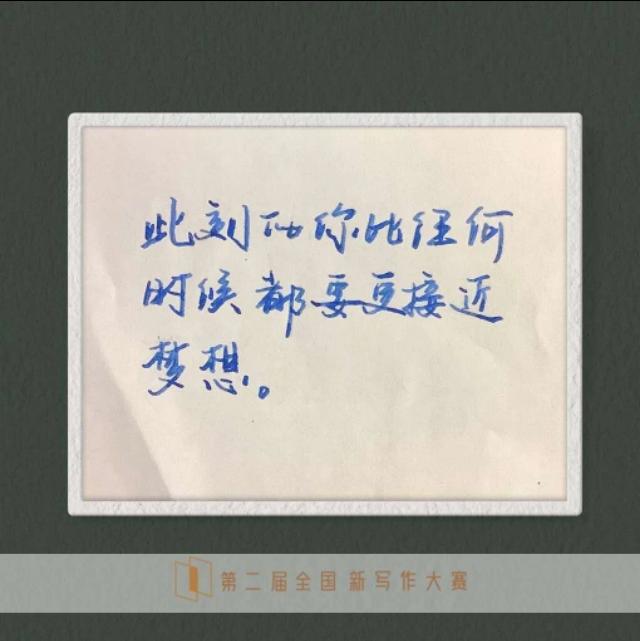 此刻的你比任何
时候都要更接近
梦想。
第二届全国新写作大赛